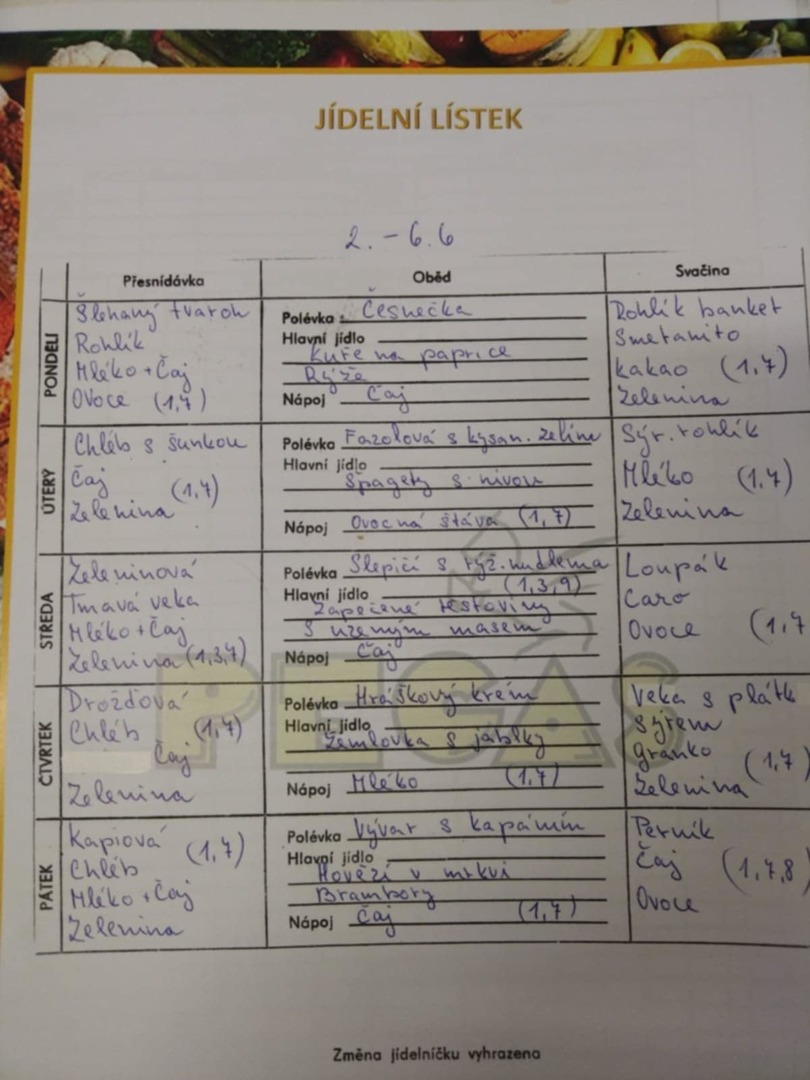 JÍDELNÍ LÍSTEK
2. - 6.6
Přesnídávka
Oběd
Svačina
PONDĚLÍ
Šlehaný tvaroh
Rohlík
Mléko + Čaj
Ovoce (1,7)
Polévka : Česnečka
Hlavní jídlo
Kuře na paprice
Rýže
Nápoj Čaj
Rohlík banket
Smetanito
kakao (1,7)
Zelenina
ÚTERÝ
Chléb s šunkou
Čaj
(1,7)
Zelenina
Polévka Fazolová s kysan. zelím
Hlavní jídlo
Špagety s nivou
Nápoj Ovocná šťáva (1,7)
Sýr. rohlík
Mléko (1,7)
Zelenina
STŘEDA
Zeleninová
Tmavá veka
Mléko + Čaj
Zelenina (1,3,7)
Polévka Slepičí s rýž. nudlema
Hlavní jídlo (1,3,9)
Zapečené těstoviny
s uzeným masem
Nápoj Čaj
Loupák
Caro
Ovoce (1,7
ČTVRTEK
Drožďová
Chléb (1,7)
Čaj
Zelenina
Polévka Hráškový krém
Hlavní jídlo
Žemlovka s jablky
Nápoj Mléko (1,7)
Veka s plátk
sýrem
granko (1,7)
Zelenina
PÁTEK
Kapiová
(1,7)
Chléb
Mléko + Čaj
Zelenina
Polévka Vývar s kapáním
Hlavní jídlo
Hovězí v mrkvi
Brambory
Nápoj Čaj (1,7)
Perník
Čaj (1,7,8)
Ovoce
PEGAS
Změna jídelníčku vyhrazena